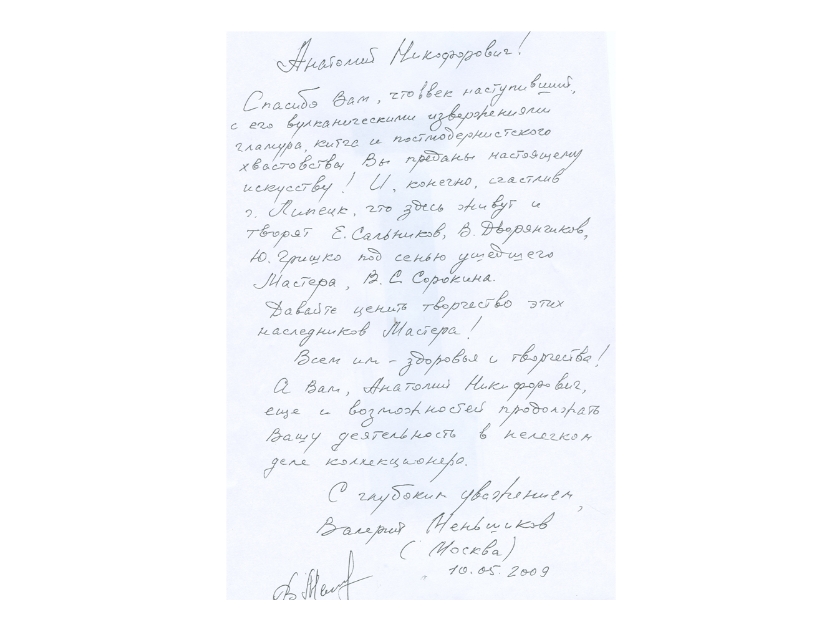 Анатолий Никифорович!
Спасибо Вам, что в век наступивший,
с его вулканическими извержениями
гламура, китча и постмодернистского
хвастовства Вы преданы настоящему
искусству! И, конечно, счастлив
г. Липецк, что здесь живут и
творят Е. Сальников, В. Дворянчиков,
Ю. Гришко под сенью ушедшего
Мастера, В. С. Сорокина.
Давайте ценить творчество этих
наследников Мастера!
Всем им - здоровья и творчества!
А Вам, Анатолий Никифорович,
еще и возможностей продолжать
Вашу деятельность в нелегком
деле коллекционера.
С глубоким уважением,
Валерий Меньшиков
(Москва)
10.05.2009